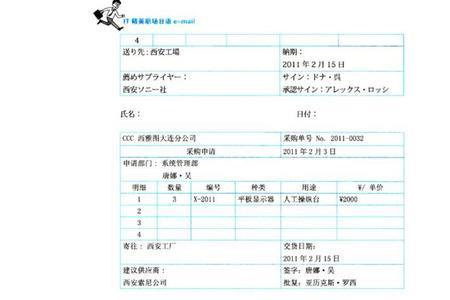 IT 精英职场日语 e-mail
4
送り先：西安工場 納期：
2011 年 2 月 15 日
薦めサプライヤー： サイン：ドナ・呉
西安ソニー社 承認サイン：アレックス・ロッシ
氏名： 日付：
CCC 西雅图大连分公司 采购单号 No. 2011-0032
采购申请 2011 年 2 月 3 日
申请部门：系统管理部
唐娜・吴
明细 数量 编号 种类 用途 ¥/ 单价
1 3 X-2011 平板显示器 人工操纵台 ¥2000
2
3
4
寄往：西安工厂 交货日期：
2011 年 2 月 15 日
建议供应商： 签字：唐娜・吴
西安索尼公司 批复：亚历克斯・罗西